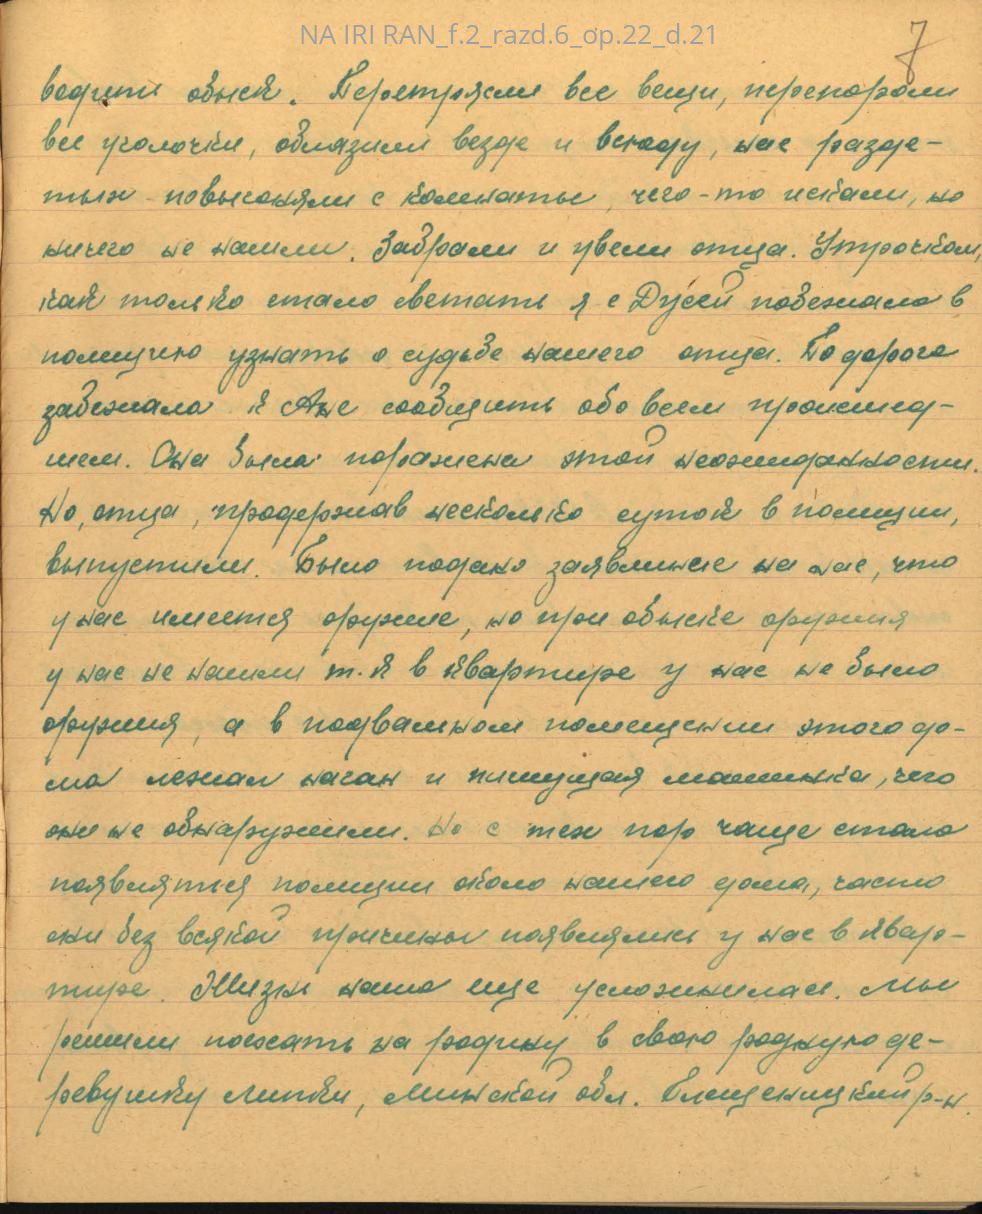 NA IRI RAN_f.2_razd.6_op.22_d.21
7
водити обыск. Перетрясли все вещи, перепороли
все уголочки, облазили везде и всюду, нас разде-
тых повыгоняли с комнаты, чего-то искали, но
ничего не нашли. Забрали и увели отца. Утрочком,
как только стало светать я с Дусей побежала в
полицию узнать о судьбе нашего отца. По дороге
забежала к Ане сообщить обо всем происшед-
шем. Она была поражена этой неожиданности.
Но, отца, продержав несколько суток в полиции,
выпустили. Было подано заявление на нас, что
у нас имеется оружие, но при обыске оружия
у нас не нашли т.к в квартире у нас не было
оружия, а в подвальном помещении этого до-
ма лежал наган и пишущая машинка, чего
они не обнаружили. Но с тех пор чаще стала
появлятся полиции около нашего дома, часто
они без всякой причины появлялись у нас в квар-
тире. Жизнь наша еще усложнилась. Мы
решили поехать на родину в свою родную де-
ревушку Липки, Минской обл. Плещеницкий р-н.